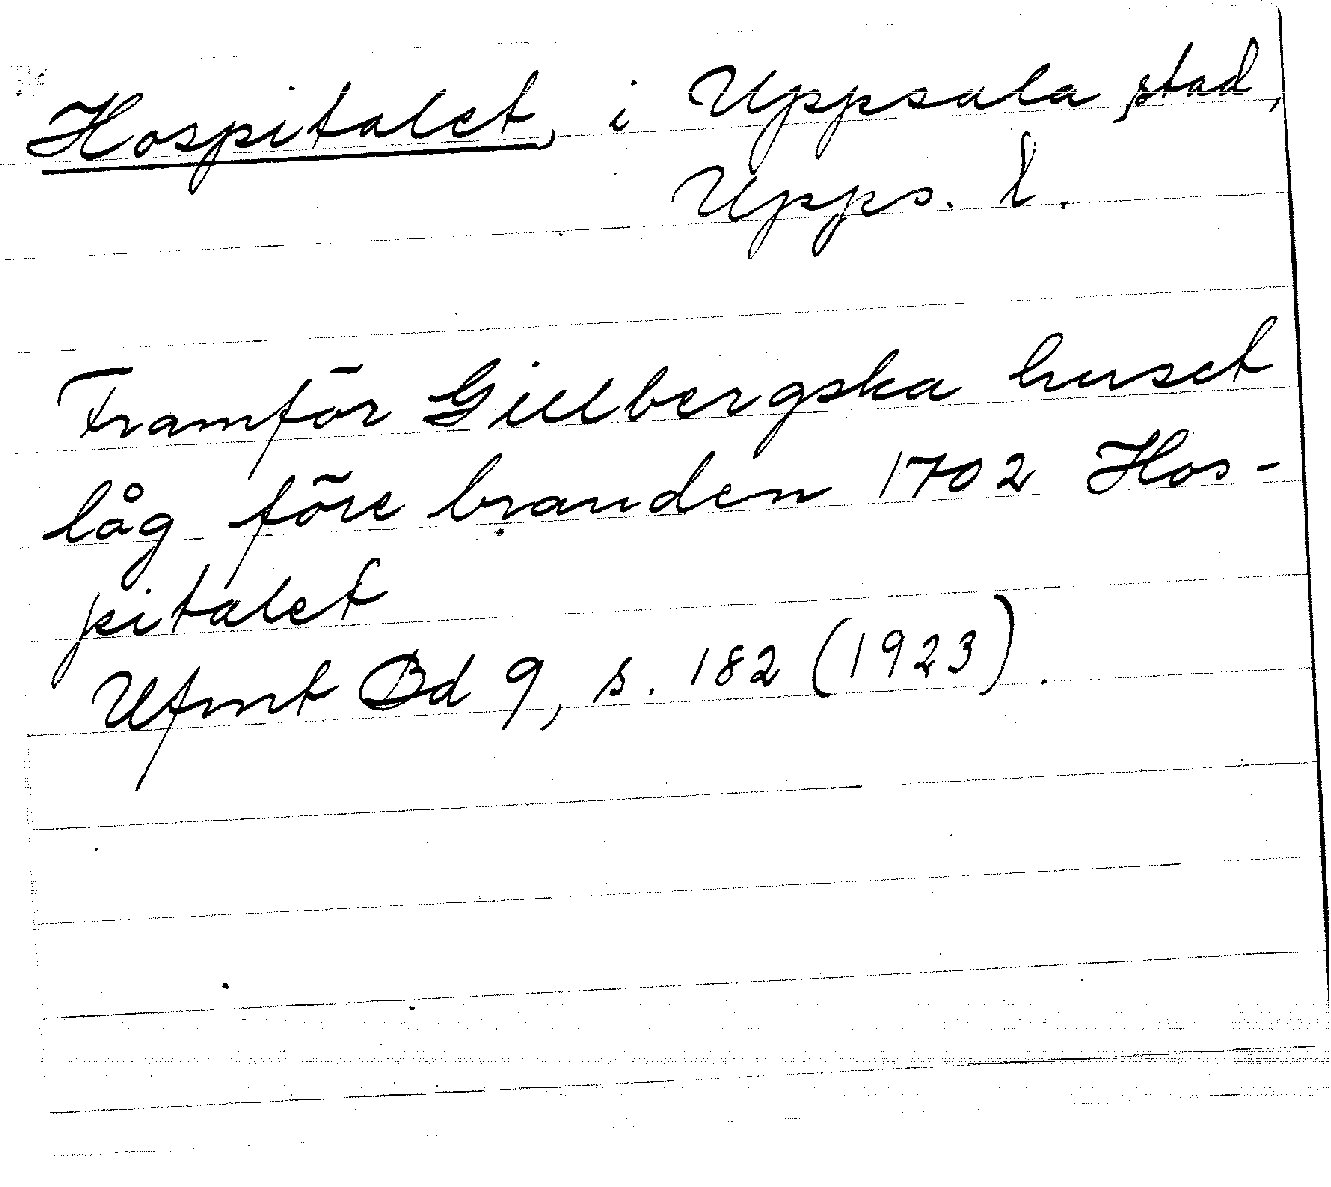 Hospitalet, i Uppsala stad,
Upps. l.
Framför Gillbergska huset
låg före branden 1702 Hos-
pitalet
Ufmt Bd 9, s. 182 (1923).